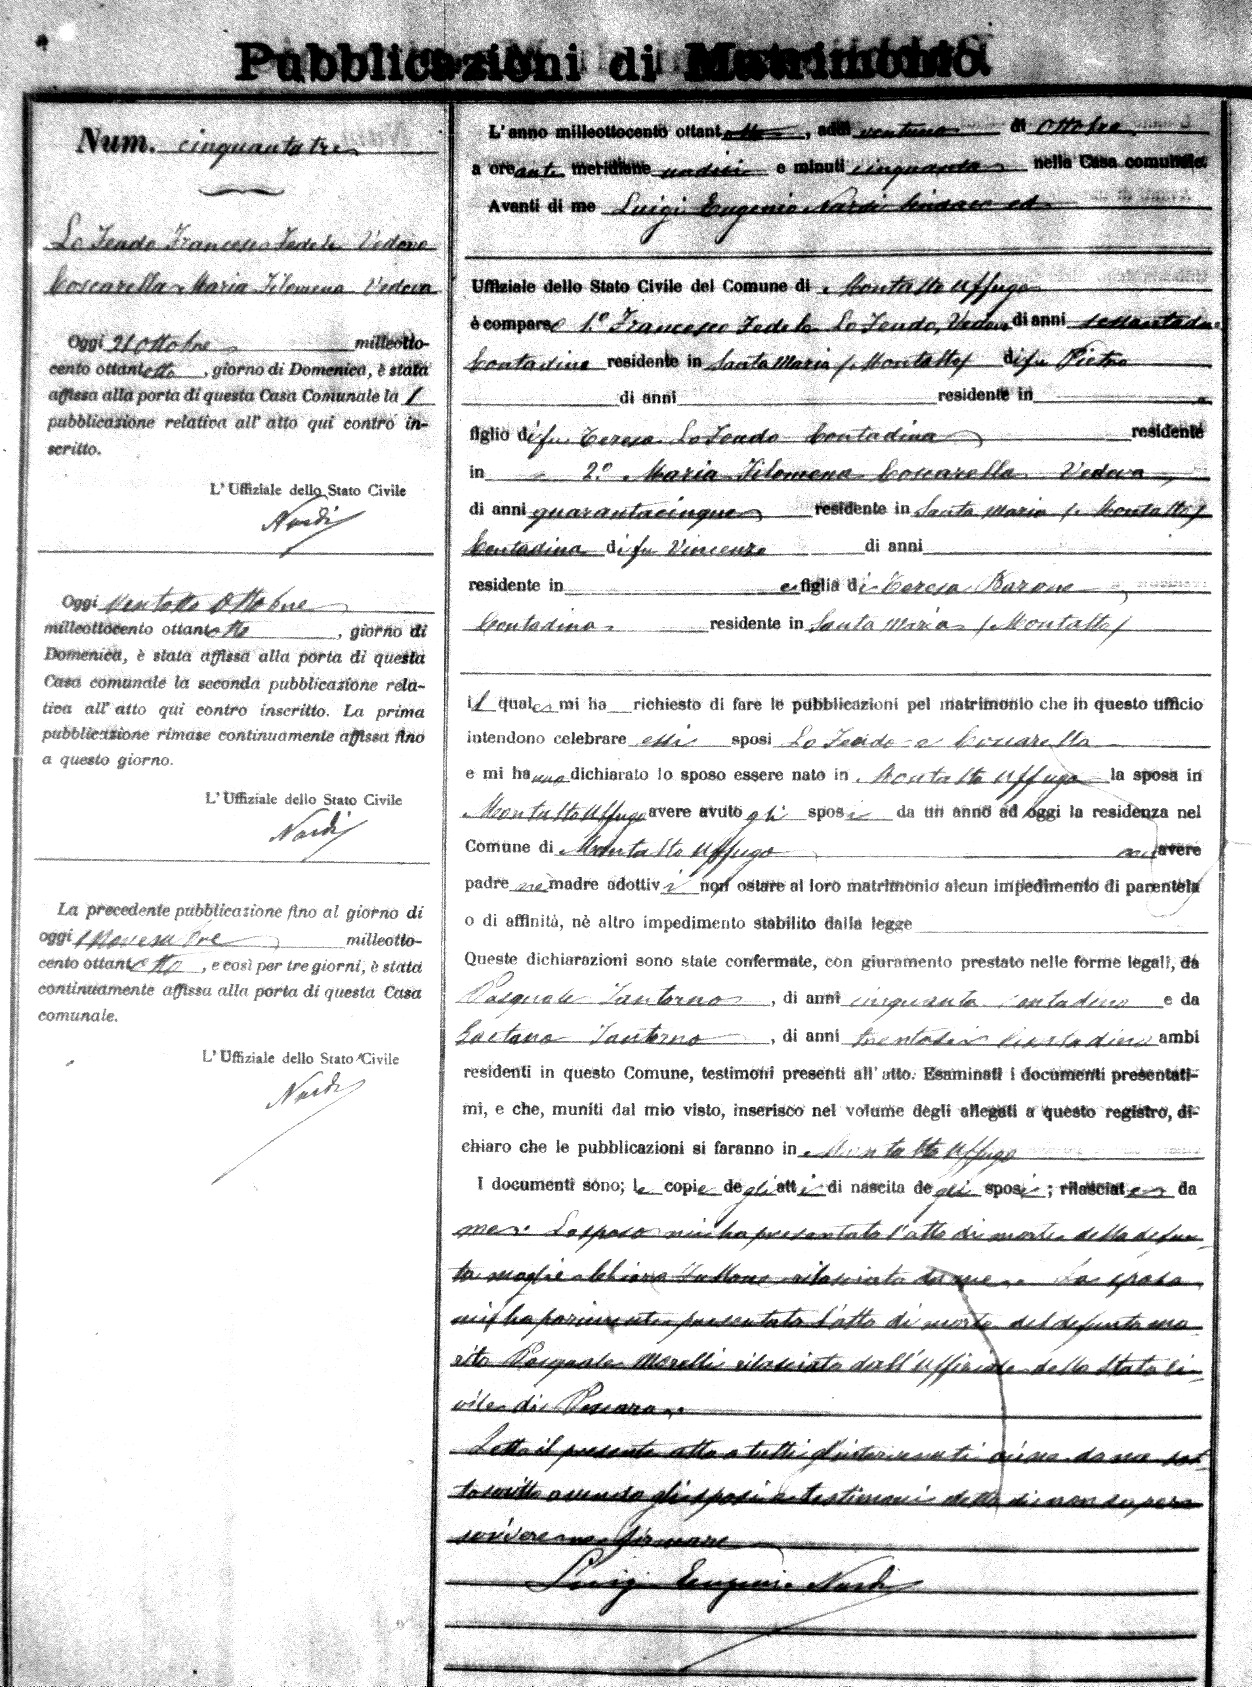 Pubblicazioni di Matrimonio.
Num. cinquantatre
Lo Feudo Francesco Fedele Vedovo
Coscarella Maria Filomena Vedova
Oggi 21 Ottobre milleotto-
cento ottantotto, giorno di Domenica, è stata
affissa alla porta di questa Casa Comunale la 1
pubblicazione relativa all' atto qui contro in-
scritto.
L' Uffiziale dello Stato Civile
Nardi
Oggi ventotto Ottobre
milleottocento ottantotto, giorno di
Domenica, è stata affissa alla porta di questa
Casa comunale la seconda pubblicazione rela-
tiva all' atto qui contro inscritto. La prima
pubblicazione rimase continuamente affissa fino
a questo giorno.
L' Uffiziale dello Stato Civile
Nardi
La precedente pubblicazione fino al giorno di
oggi 1 Novembre milleotto-
cento ottantotto, e così per tre giorni, è stata
continuamente affissa alla porta di questa Casa
comunale.
L' Uffiziale dello Stato Civile
Nardi
L' anno milleottocento ottantotto, addì ventuno di Ottobre
a ore anti meridiane undici e minuti cinquanta nella Casa comunale.
Avanti di me Luigi Eugenio Nardi Sindaco ed
Uffiziale dello Stato Civile del Comune di Montalto Uffugo
è comparso 1.º Francesco Fedele Lo Feudo, Vedovo di anni
Contadino residente in Santa Maria (Montalto) di fu Pietro
di anni residente in
figlio di fu Teresa Lo Feudo Contadina residente
in 2.º Maria Filomena Coscarella Vedova
di anni quarantacinque residente in Santa Maria (Montalto)
Contadina di fu Vincenzo di anni
residente in e figlia di Teresa Barone
Contadina residente in Santa Maria (Montalto)
i l quales mi ha richiesto di fare le pubblicazioni pel matrimonio che in questo ufficio
intendono celebrare essi sposi Lo Feudo e Coscarella
e mi hanno dichiarato lo sposo essere nato in Montalto Uffugo la sposa in
Montalto Uffugo avere avuto gli sposi da un anno ad oggi la residenza nel
Comune di Montalto Uffugo non avere
padre nè madre adottivi non ostare al loro matrimonio alcun impedimento di parentela
o di affinità, nè altro impedimento stabilito dalla legge
Queste dichiarazioni sono state confermate, con giuramento prestato nelle forme legali, da
Pasquale Tantorno, di anni cinquanta contadino e da
Gaetano Tantorno, di anni trentasei Contadino ambi
residenti in questo Comune, testimoni presenti all' atto. Esaminati i documenti presentati-
mi, e che, muniti dal mio visto, inserisco nel volume degli allegati a questo registro, di-
chiaro che le pubblicazioni si faranno in Montalto Uffugo
I documenti sono; le copie degli atti di nascita degli sposi; rilasciate da
me. Lo sposo mi ha presentato l'atto di morte della defun-
ta moglie Chiara rilasciato da me. La sposa
mi ha parimente presentato l'atto di morte del defunto ma-
rito Pasquale Morelli rilasciato dall' Uffiziale dello Stato Ci-
vile di
Letto il presente atto a tutti gl'intervenuti viene da me sot-
toscritto avendo gli sposi e testimoni detto di non sapere
scrivere ne firmare
Luigi Eugenio Nardi